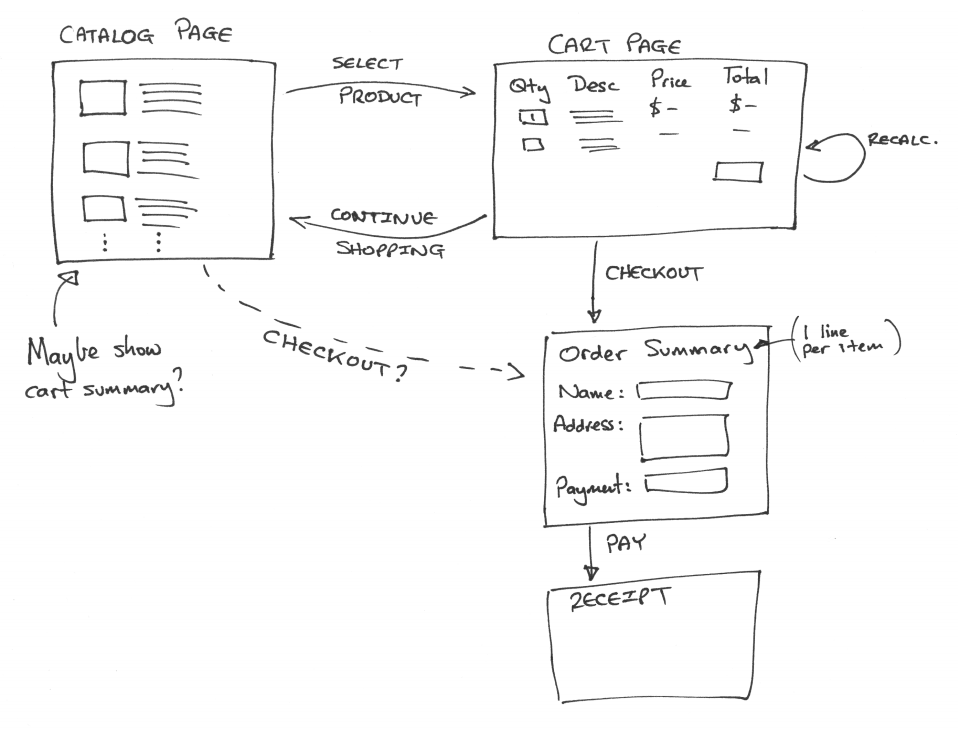 CATALOG PAGE
SELECT
PRODUCT
CART PAGE
Qty Desc Price Total
1 $- $-
RECALC.
CONTINUE
SHOPPING
CHECKOUT
Maybe show
cart summary?
CHECKOUT?
Order Summary
(1 line
per item)
Name:
Address:
Payment:
PAY
RECEIPT